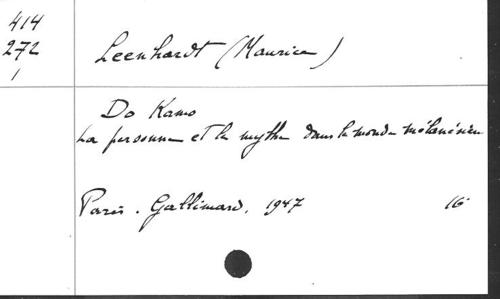 414
272
1
Leenhardt (Maurice)
Do Kamo
La personne et le mythe dans le monde mélanésien
Paris. Gallimard, 1947 16